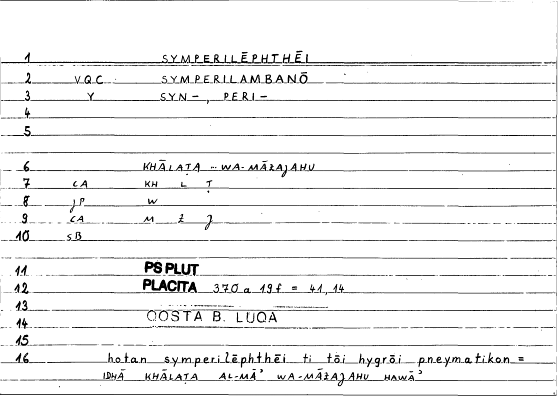 1 SYMPERILĒPHTHĒI
2 V.Q.C. SYMPERILAMBANŌ
3 Y SYN-, PERI-
4
5
6 KHĀLAṬA - WA-MĀZAJAHU
7 CA KH L Ṭ
8 JP W
9 CA M Z J
10 SB
11 PS PLUT
12 PLACITA 370 a 19f = 41,14
13
14 QOSTA B. LUQA
15
16 hotan symperilēphthēi ti tōi hygrōi pneymatikon =
IDHĀ KHĀLAṬA AL-MĀʾ WA-MĀZAJAHU HAWĀʾ